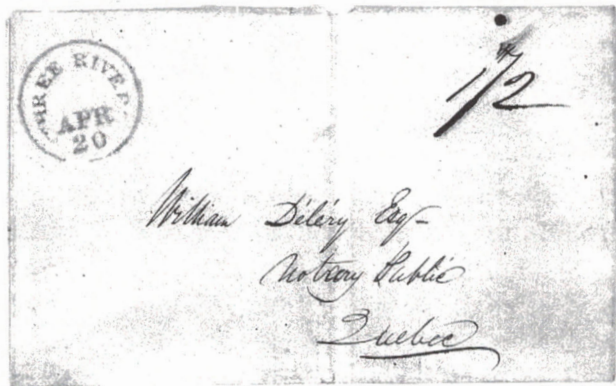 THREE RIVER
APR
20
1/2
William Déléry Esq
Notary Public
Quebec